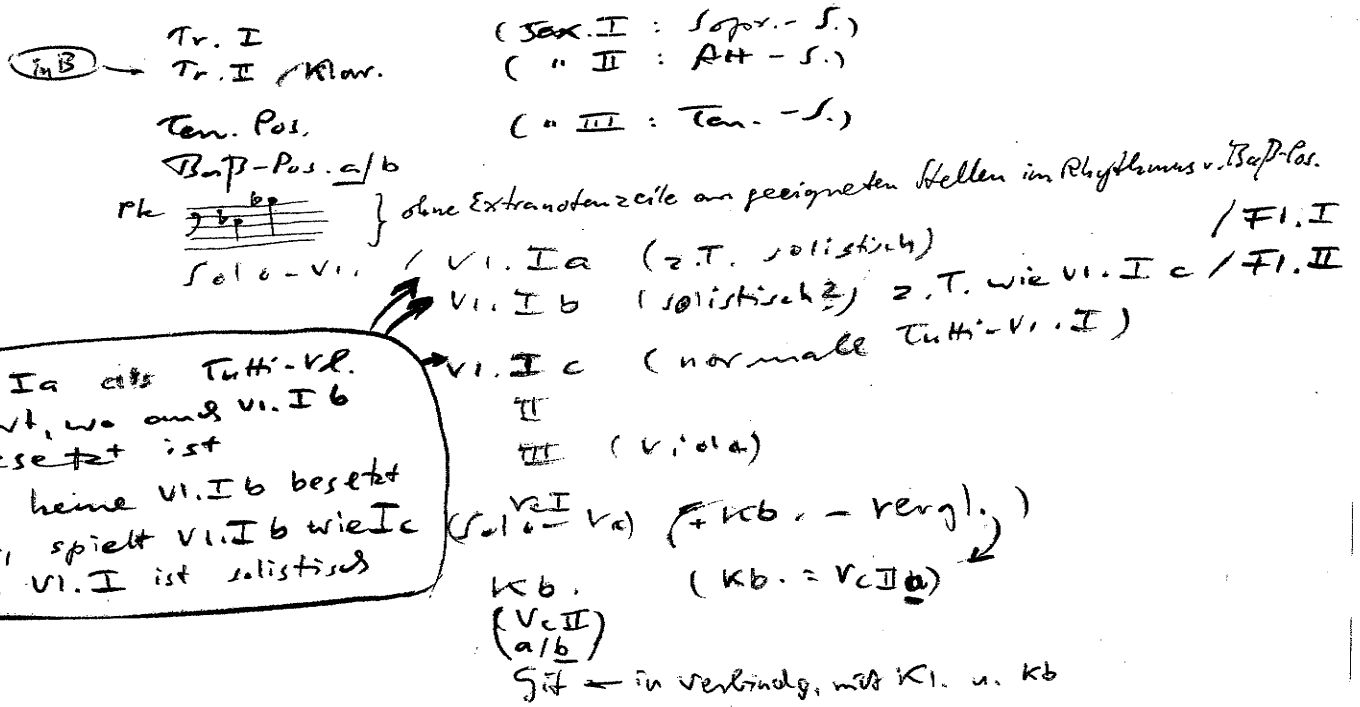 Tr. I (Sax. I : Sopr.- S.)
in B → Tr. II / Klar. ( " II : Alt - S.)
Ten. Pos. ( " III : Ten. - S.)
Baß-Pos. a/b
Pk } ohne Extranotenzeile an geeigneten Stellen im Rhythmus v. Baß-Pos.
Solo - Vl. / Vl. I a (z.T. solistisch) / Fl. I
Vl. I b (solistisch?) z.T. wie Vl. I c / Fl. II
Vl. I c (normale Tutti-Vl. I)
II
III (Viola)
Vc I
(Solo - Vc) (+ Kb. - vergl. )
Kb. (Kb. = Vc II a)
(Vc II)
a/b
Git ← in Verbindg. mit Kl. u. Kb
Ia als Tutti-Vl.
wo auch Vl. I b
ist
keine Vl. I b besetzt
, spielt Vl. I b wie I c
Vl. I ist solistisch